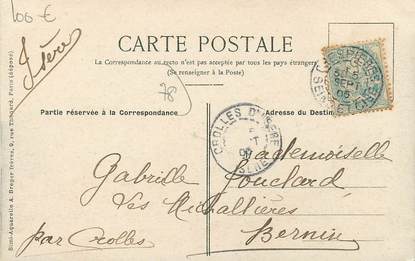 100 €
Isère
78
CARTE POSTALE
La Correspondance au recto n'est pas acceptée par tous les pays étrangers
(Se renseigner à la Poste)
Partie réservée à la Correspondance
Adresse du Destin
CROLLES D'ISERE
Mademoiselle
Gabrielle Fouchard
Les Michallières
par Crolles Bernin
Simi-Aquarelle A. Breger frères, 9, rue Thénard, Paris (déposé)